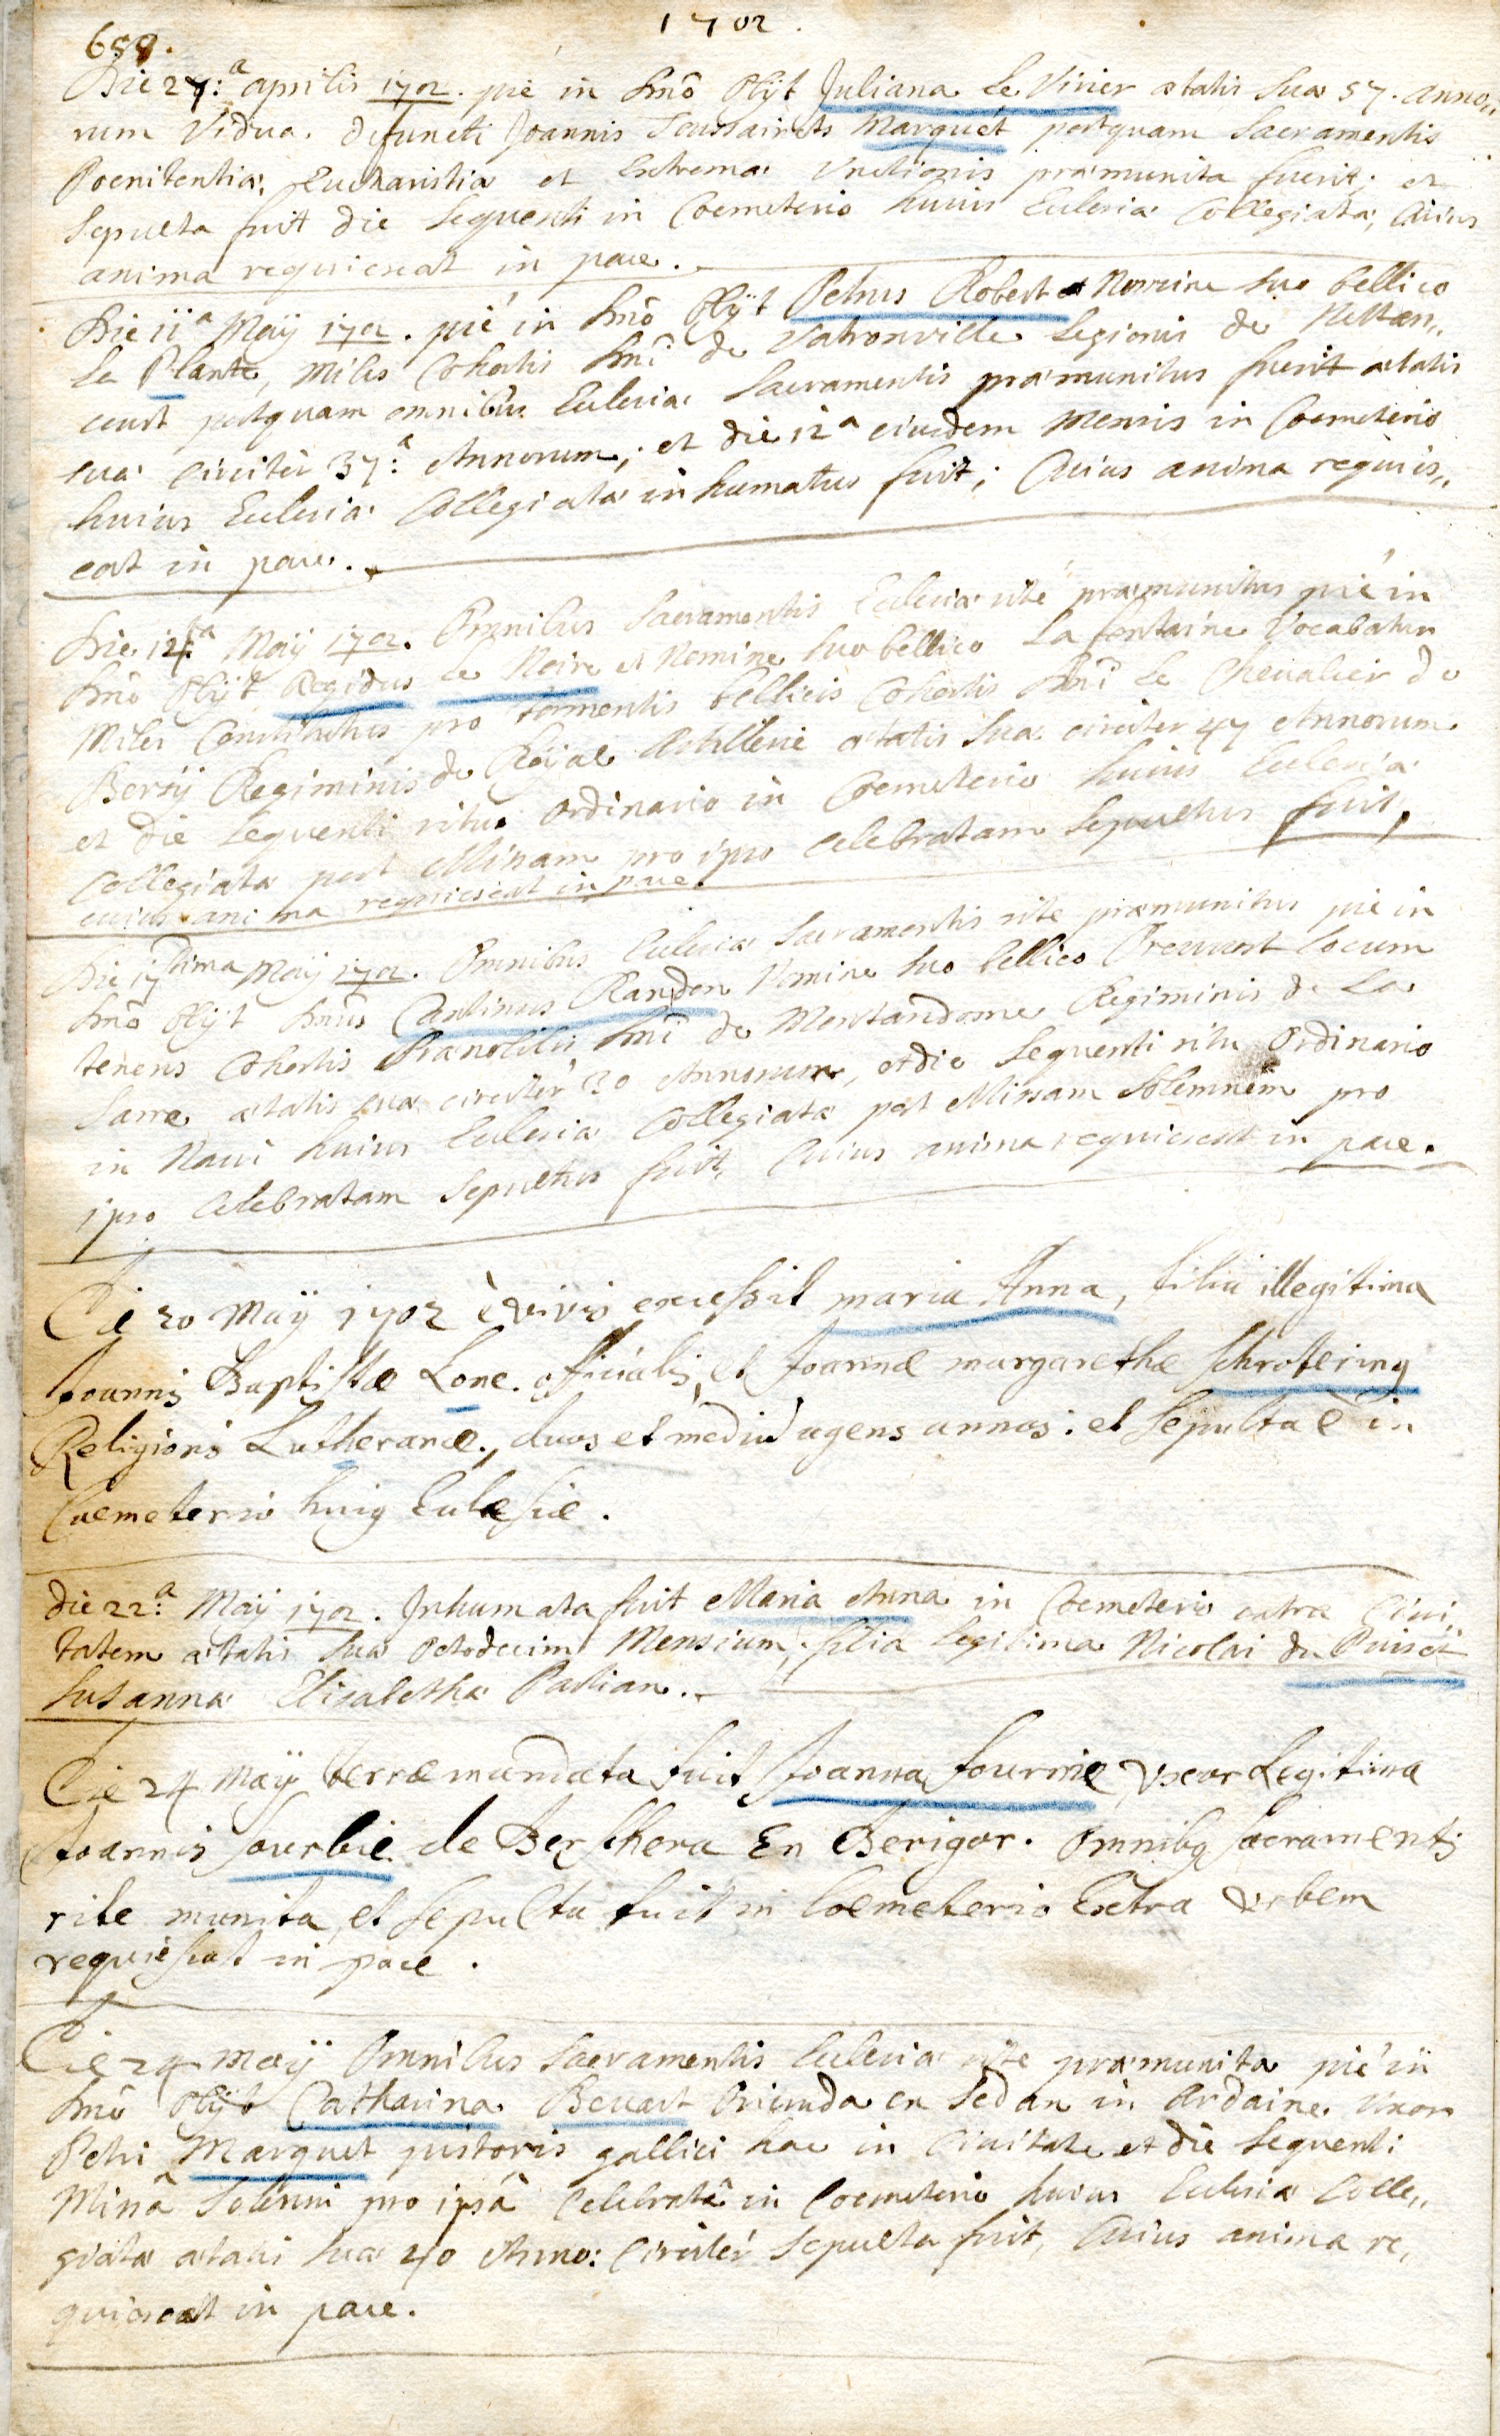 1702.
659.
Die 27:a aprilis 1702. pie in Dnō Obijt Juliana Le Vivier ætatis Suæ 57. anno,,
rum Vidua defuncti Joannis Toussaincts Marquet postquam Sacramentis
Poenitentiæ, Eucharistiæ et Extremæ Unctionis præmunita fuerit; et
Sepulta fuit die Sequenti in Coemeterio huius Ecclesiæ Collegiatæ, Cuius
anima requiescat in pace.
Die 11a Maÿ 1702. pié in Dnō Obijt Petrus Robert Nomine Suo bellico
La Plante, Miles Cohortis Dnī de Vatronville Legionis de Nettan,,
court postquam omnibus Ecclesiæ Sacramentis præmunitus fuerit ætatis
suæ Circiter 37:a Annorum, et die 12a eiusdem Mensis in Coemeterio
huius Ecclesiæ Collegiatæ inhumatus fuit; Cuius anima requies,,
cat in pace.
Die 14:ta Maÿ 1702. Omnibus Sacramentis Ecclesiæ rité præmunitus pié in
Dnō Obijt Aegidius Le Noire et Nomine Suo bellico La fontaine Vocabatur
Miles Constitutus pro tormentis bellicis Cohortis Dnī Le Chevalier de
Bersÿ Regiminis de Roÿal Artillerie ætatis Suæ circiter 47 Annorum
et die Sequenti ritu Ordinario in Coemeterio huius Ecclesiæ
Collegiatæ post Missam pro ipso Celebratam Sepultus fuit,
cuius anima requiescat in pace.
Die 17tima Maÿ 1702. Omnibus Ecclesiæ Sacramentis rite præmunitus pié in
Dnō Obijt Dnūs Antinus Randon Nomine Suo bellico Locum
tenens Cohortis Prænobilis Dnī de Montandome Regiminis de La
Sarre ætatis suæ circiter 30 Annorum, et die Sequenti ritu Ordinario
in Navi huius Ecclesiæ Collegiatæ post Missam Solemnem pro
ipso Celebratam Sepultus fuit, Cuius anima requiescat in pace.
Die 20 Maÿ 1702 è vivis excessit maria Anna, filia illegitima
Joannis Baptistæ Lone. officialis, et Joannæ margarethæ Schrotering
Religionis Lutheranæ, duos et mediū agens annos: et Sepulta ē in
Coemeterio huig Ecclesiæ.
die 22:a Maÿ 1702. Inhumata fuit Maria Anna in Coemeterio extra Civi,,
tatem ætatis Suæ Octodecim Mensium, filia Legitima Nicolai du Puis et
Susanna Elisabetha Pastian.
Die 24 Maÿ terræ mandata fuit Joanna fournie Uxor Legitima
Joannis sourbie de Berschera En Berigor. Omnibg sacramentis
rite munita, et sepulta fuit in Coemeterio Extra urbem
requiescat in pace.
Die 24 Maÿ Omnibus Sacramentis Ecclesiæ rite præmunita pié in
Dnō Obijt Catharina Bevart Oriunda ex Sedan in Ardaine Uxor
Petri Marquet pistoris gallici hac in Civitate et die Sequenti
Missâ Solenni pro ipsâ Celebratâ in Coemeterio huius Ecclesiæ Colle,,
giatæ ætatis Suæ 40 Anno: Circiter Sepulta fuit, Cuius anima re,,
quiescat in pace.